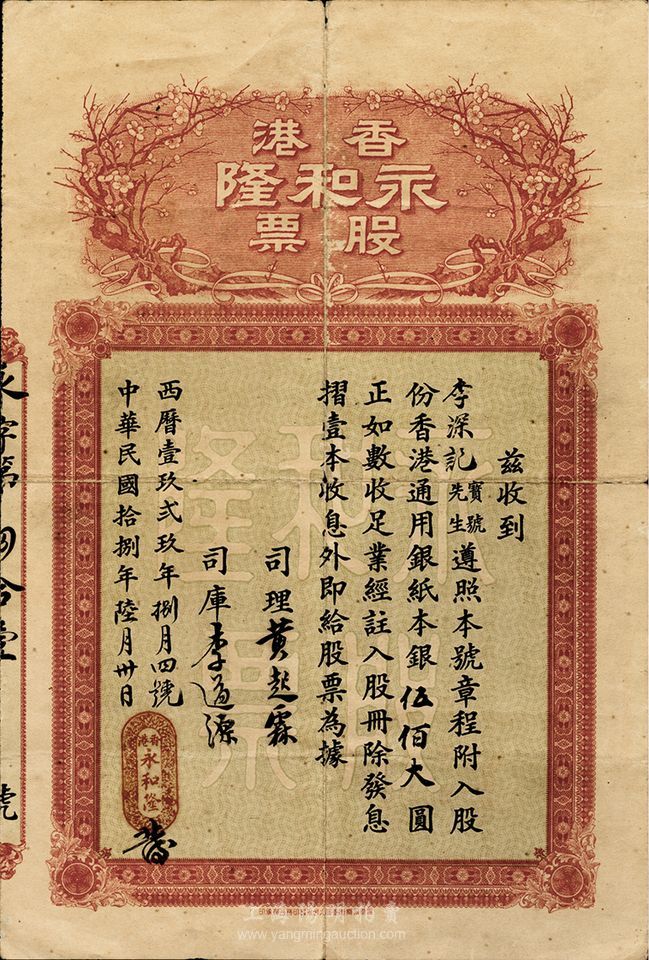 香港
永和隆
股票
茲收到
李深記寶號先生遵照本號章程附入股
份香港通用銀紙本銀伍佰大圓
正如數收足業經註入股冊除發息
摺壹本收息外即給股票為據
司理黃起霖
司庫李道源
西曆壹玖弍玖年捌月四號
中華民國拾捌年陸月卅日
香港
永和隆
永字第四拾壹號
www.yangmingauction.com